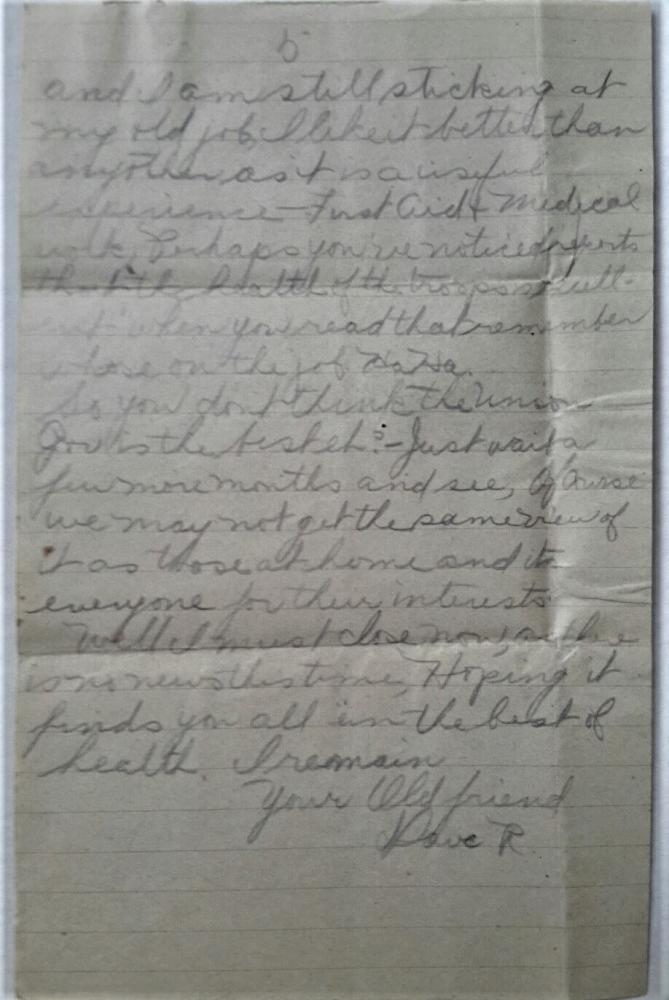 5
and I am still sticking at
my old job, I like it better than
any other as it is a useful
experience - First Aid & Medical
work, Perhaps you've noticed reports
that "the health of the troops is excell-
ent" when you read that remember
whose on the job Ha Ha.
So you don't think the Union
Gov is the best eh? - Just wait a
few more months and see, Of course
we may not get the same view of
it as those at home and its
everyone for their interests
Well I must close now, as there
is no news this time, Hoping it
finds you all in the best of
health. I remain
Your Old friend
Dave R